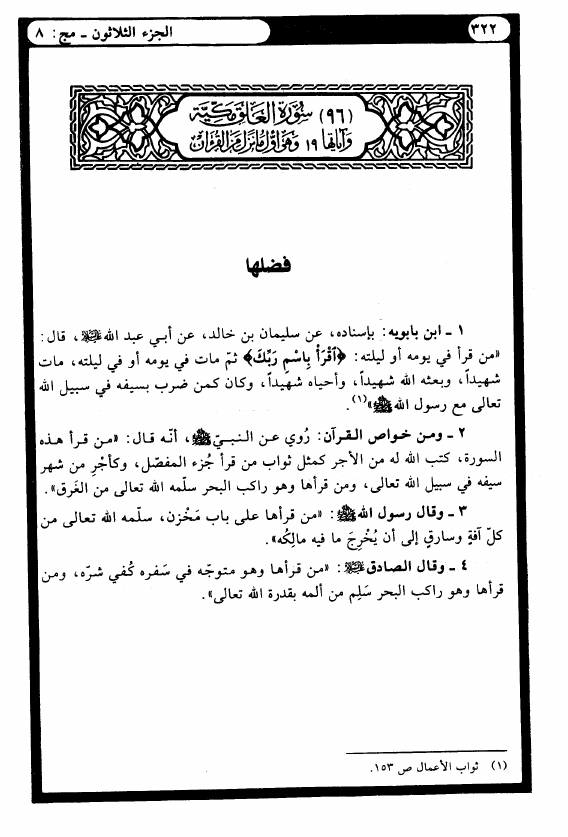 ٣٢٢
الجزء الثلاثون ـ مج: ٨
(٩٦) سُورَة العَلَق مَكيَّة
وَآيَاتهَا ١٩ وَهيَ أوّل مَا نَزَلَ مِنَ القُرْآن
فضلها
١ ـ ابن بابويه: بإسناده، عن سليمان بن خالد، عن أبي عبد الله ﷺ، قال:
«من قرأ في يومه أو ليلته: ﴿اَقْرَأْ بِاسْمِ رَبِّكَ﴾ ثمّ مات في يومه أو في ليلته، مات
شهيداً، وبعثه الله شهيداً، وأحياه شهيداً، وكان كمن ضرب بسيفه في سبيل الله
تعالى مع رسول الله ﷺ»(١).
٢ ـ ومن خواص القرآن: رُوي عن النبيّ ﷺ، أنّه قال: «من قرأ هذه
السورة، كتب الله له من الأجر كمثل ثواب من قرأ جُزء المفصّل، وكأجْرِ من شهر
سيفه في سبيل الله تعالى، ومن قرأها وهو راكب البحر سلّمه الله تعالى من الغَرق».
٣ ـ وقال رسول الله ﷺ: «من قرأها على باب مَخْزن، سلّمه الله تعالى من
كلّ آفةٍ وسارقٍ إلى أن يُخْرِجَ ما فيه مالِكُه».
٤ ـ وقال الصادق ﷺ: «من قرأها وهو متوجّه في سَفره كُفي شرّه، ومن
قرأها وهو راكب البحر سَلِم من ألمه بقدرة الله تعالى».
(١) ثواب الأعمال ص ١٥٣.